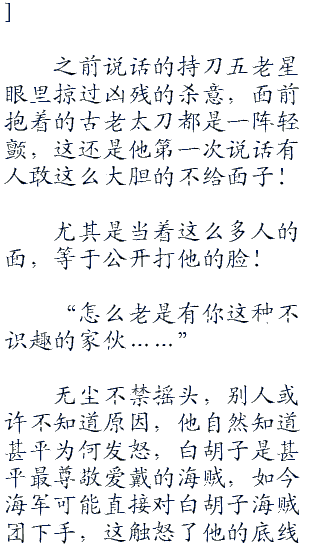 ]
之前说话的持刀五老星
眼里掠过凶残的杀意，面前
抱着的古老太刀都是一阵轻
颤，这还是他第一次说话有
人敢这么大胆的不给面子！
尤其是当着这么多人的
面，等于公开打他的脸！
“怎么老是有你这种不
识趣的家伙……”
无尘不禁摇头，别人或
许不知道原因，他自然知道
甚平为何发怒，白胡子是甚
平最尊敬爱戴的海贼，如今
海军可能直接对白胡子海贼
团下手，这触怒了他的底线